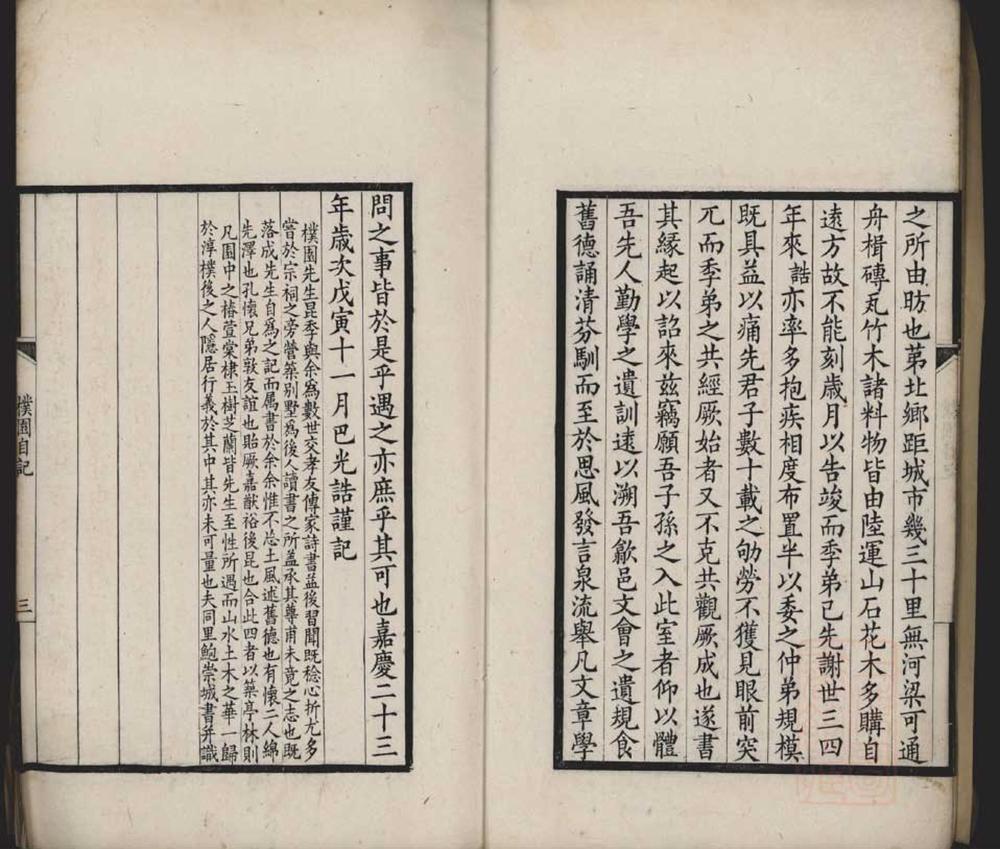 之所由昉也苐北鄉距城市幾三十里無河梁可通
舟楫磚瓦竹木諸料物皆由陸運山石花木多購自
遠方故不能刻歲月以告竣而季弟已先謝世三四
年來誥亦率多抱疾相度布置半以委之仲弟規模
既具益以痛先君子數十載之劬勞不獲見眼前突
兀而季弟之共經厥始者又不克共觀厥成也遂書
其緣起以詔來茲竊願吾子孫之入此室者仰以體
吾先人勤學之遺訓遠以溯吾歙邑文會之遺規食
舊德誦清芬馴而至於思風發言泉流舉凡文章學
問之事皆於是乎遇之亦庶乎其可也嘉慶二十三
年歲次戊寅十一月巴光誥謹記
樸園先生昆季與余為數世交孝友傳家詩書益後習聞既稔心折尤多
嘗於宗祠之旁營築别墅為後人讀書之所盖承其尊甫未竟之志也既
落成先生自為之記而属書於余余惟不忘土風述舊德也有懷二人綿
先澤也孔懷兄弟敦友誼也貽厥嘉猷裕後昆也合此四者以築亭林則
凡園中之椿萱棠棣玉樹芝蘭皆先生至性所遇而山水土木之華一歸
於淳樸後之人隱居行義於其中其亦未可量也夫同里鮑崇城書并識
樸園自記
三